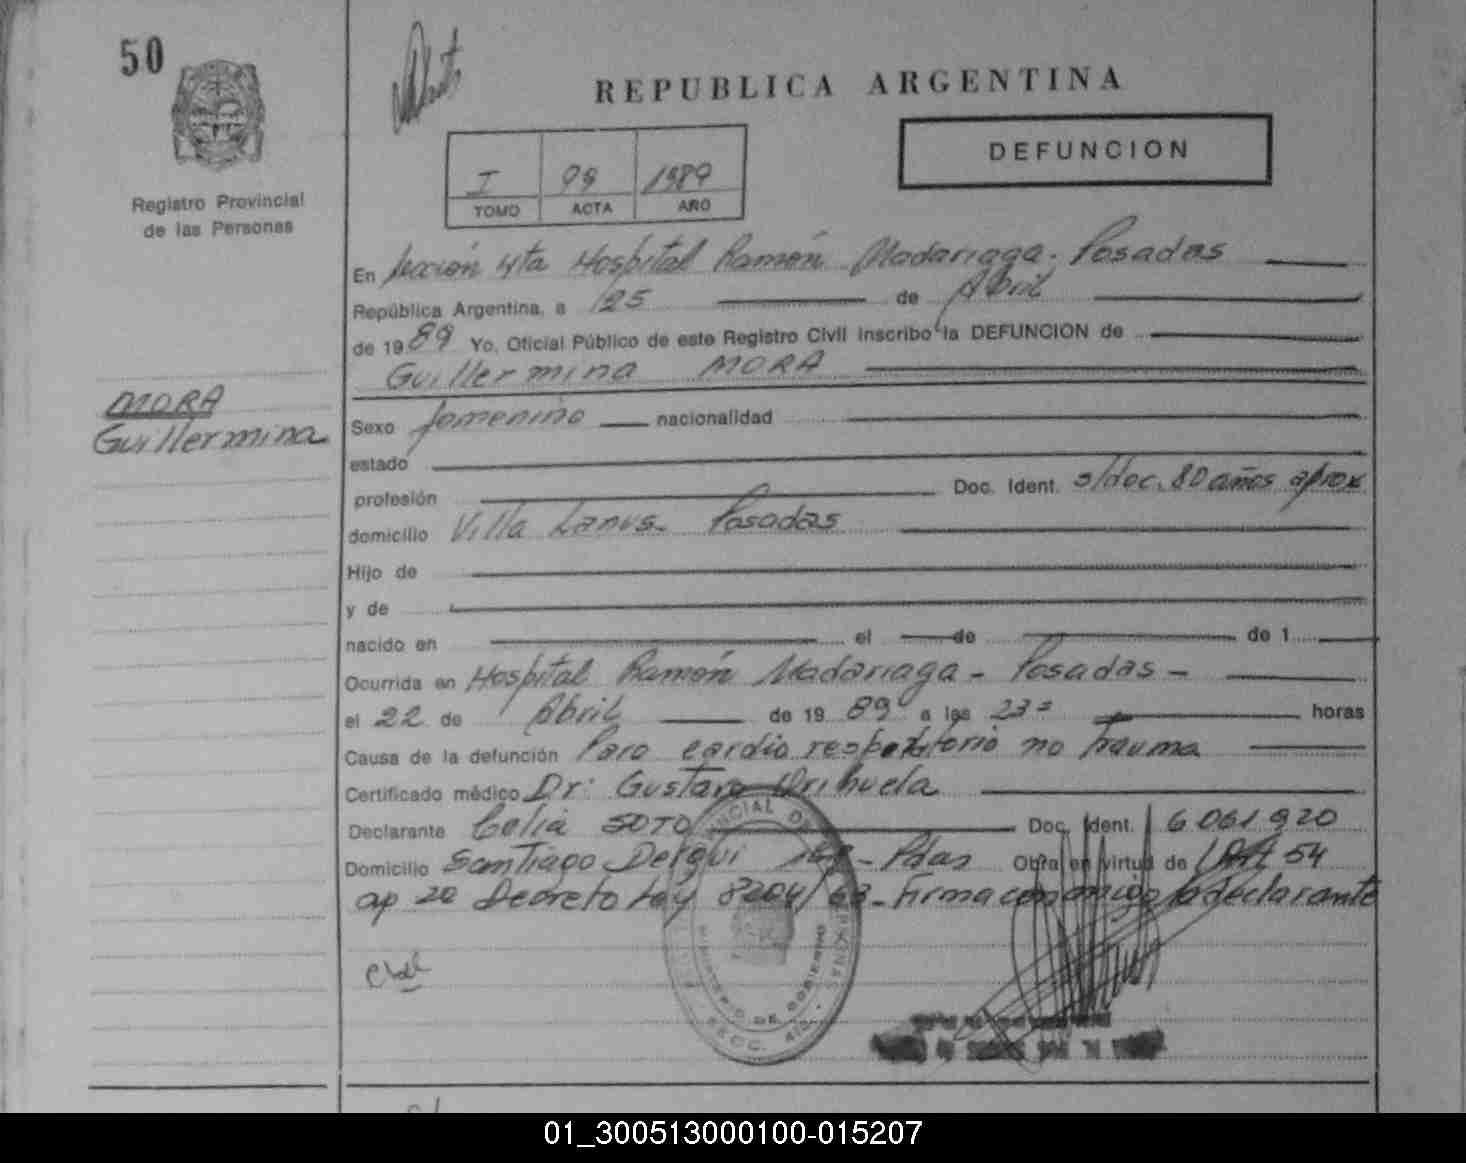 50
REPUBLICA ARGENTINA
DEFUNCION
I 99 1989
TOMO ACTA AÑO
Registro Provincial
de las Personas
MORA
Guillermina
En Sección 4ta Hospital Ramón Madariaga. Posadas
República Argentina, a 25 de Abril
de 1989 Yo, Oficial Público de este Registro Civil inscribo la DEFUNCION de
Guillermina MORA
Sexo femenino nacionalidad
estado
profesión Doc. Ident. s/doc. 80 años aprox
domicilio Villa Lanus - Posadas
Hijo de
y de
nacido en el de de 1
Ocurrida en Hospital Ramón Madariaga - Posadas -
el 22 de Abril de 1989 a las 23= horas
Causa de la defunción Paro cardio respiratorio no trauma
Certificado médico Dr: Gustavo Orihuela
Declarante Celia SOTO Doc. Ident. 6061920
Domicilio Santiago Derqui - Pdas Obra en virtud de Art 54
ap 2º Decreto Ley 8204/63 - Firma conmigo la declarante
MINISTERIO DE GOBIERNO
01_300513000100-015207